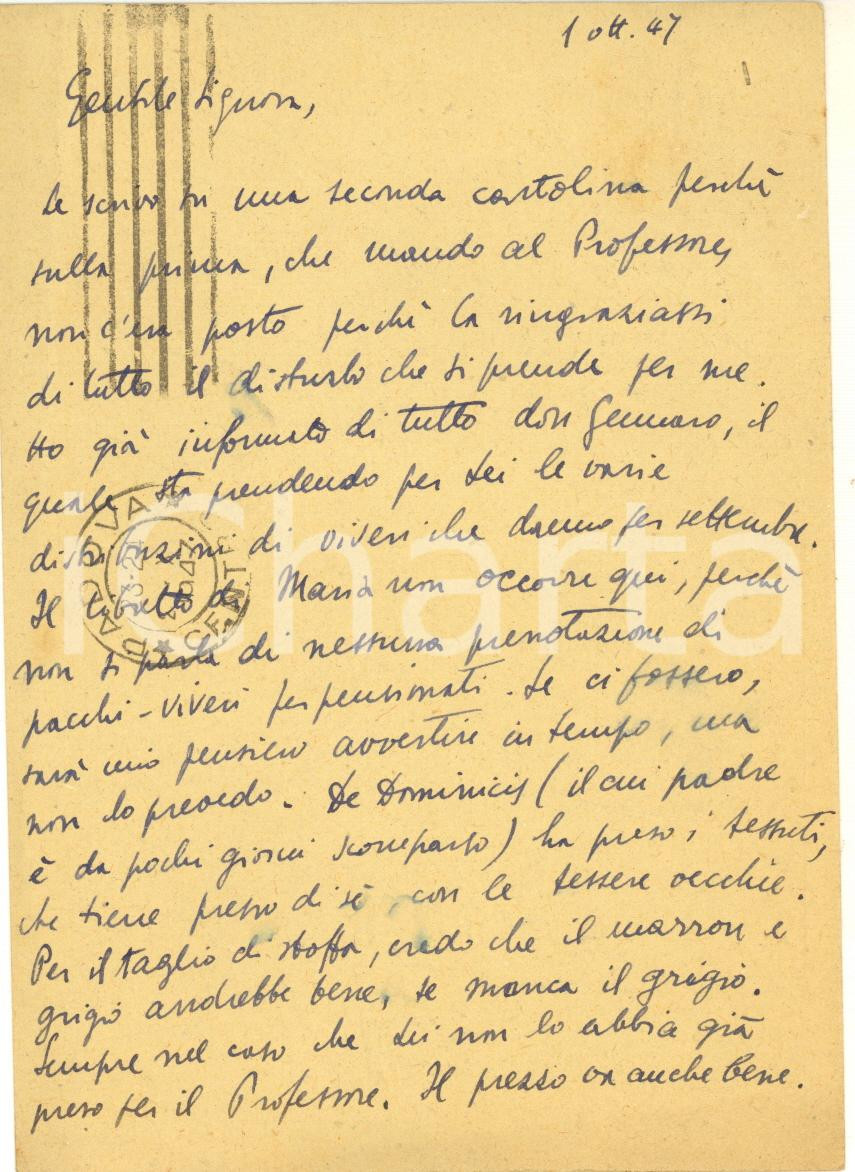 1 ott. 47
Gentile Signora,
Le scrivo su una seconda cartolina perchè
sulla prima, che mando al Professore,
non c'era posto perchè La ringraziassi
di tutto il disturbo che si prende per me.
Ho già informato di tutto don Gennaro, il
quale sta prendendo per Lei le varie
distribuzioni di viveri che danno per settembre.
Il libretto di Maria non occorre qui, perchè
non si parla di nessuna prenotazione di
pacchi-viveri per pensionati. Se ci fossero,
sarà mio pensiero avvertire in tempo, ma
non lo prevedo. De Dominicis (il cui padre
è da pochi giorni scomparso) ha preso i tessuti,
che tiene presso di sè, con le tessere vecchie.
Per il taglio di stoffa, credo che il marron e
grigio andrebbe bene, se manca il grigio.
Sempre nel caso che Lei non lo abbia già
preso per il Professore. Il prezzo va anche bene.
PADOVA CENTRO
1947
rCharta